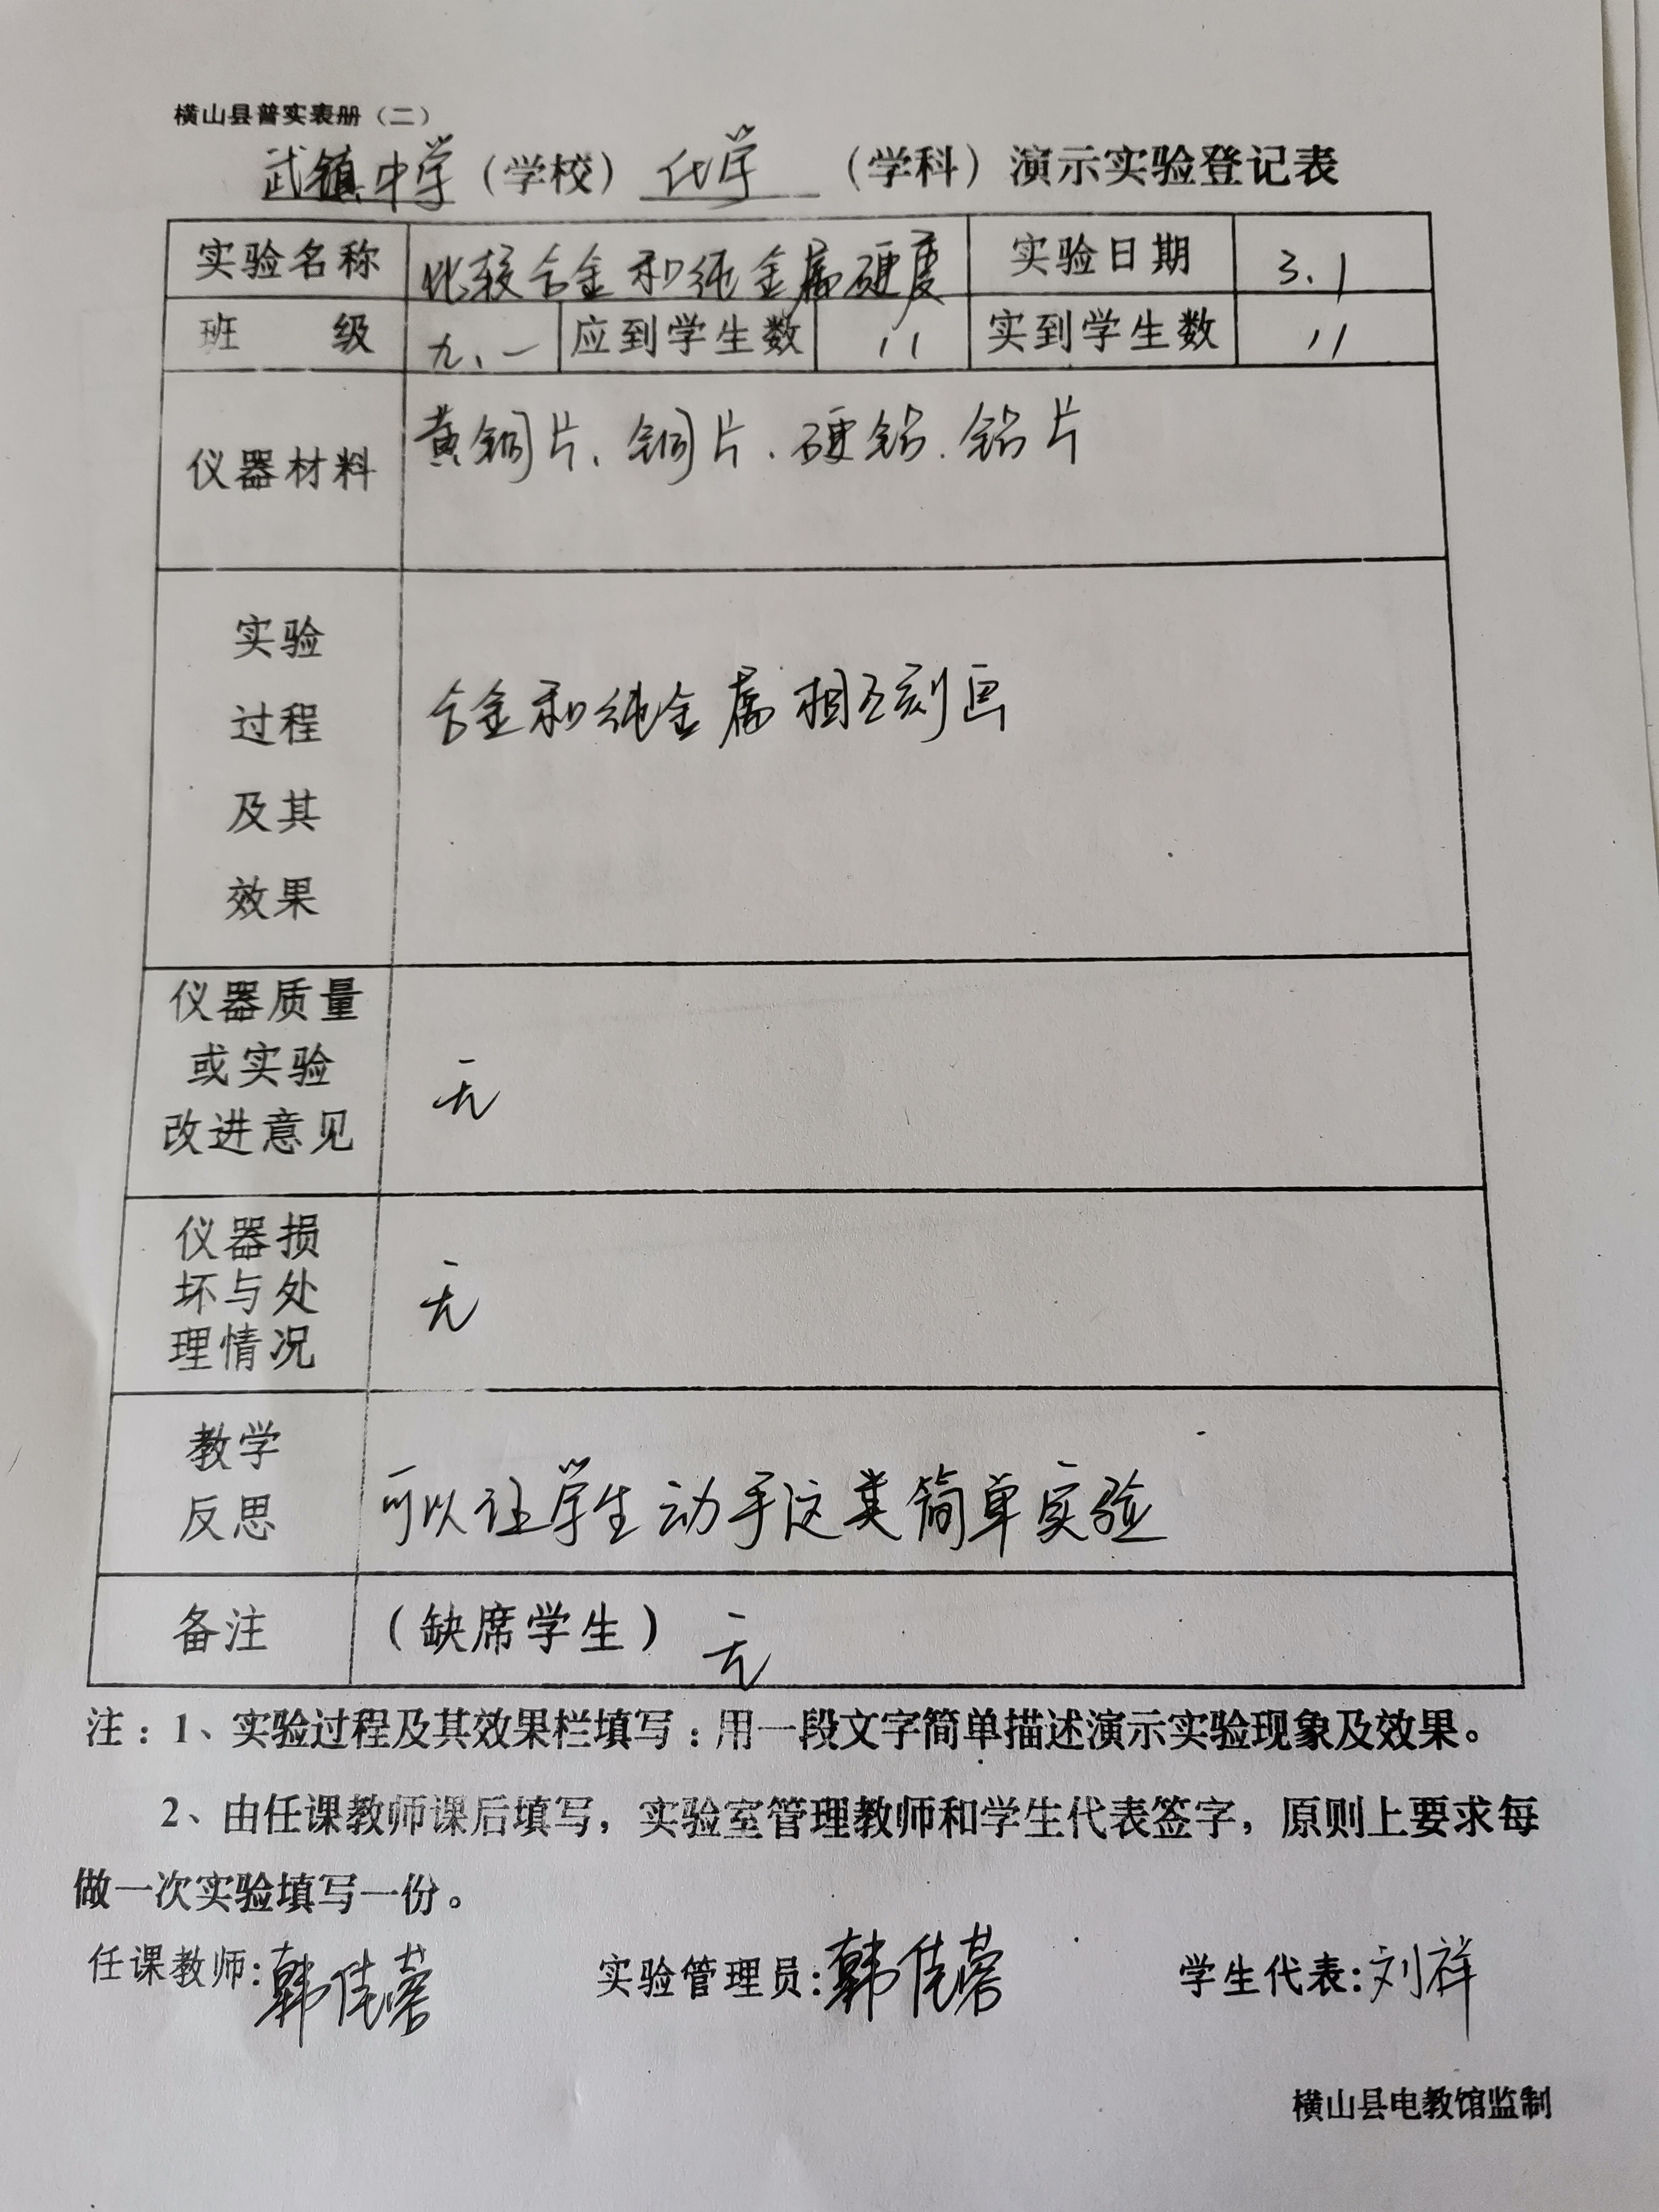 横山县普实表册（二）
武镇中学（学校）化学（学科）演示实验登记表
实验名称 比较合金和纯金属硬度 实验日期 3.1
班 级 九、一 应到学生数 11 实到学生数 11
仪器材料 黄铜片、铜片、硬铝、铝片
实验
过程
及其
效果
合金和纯金属相互刻画
仪器质量
或实验
改进意见
无
仪器损
坏与处
理情况
无
教学
反思
可以让学生动手这类简单实验
备注 （缺席学生） 无
注：1、实验过程及其效果栏填写：用一段文字简单描述演示实验现象及效果。
2、由任课教师课后填写，实验室管理教师和学生代表签字，原则上要求每
做一次实验填写一份。
任课教师：韩佳蓉 实验管理员：韩佳蓉 学生代表：刘祥
横山县电教馆监制